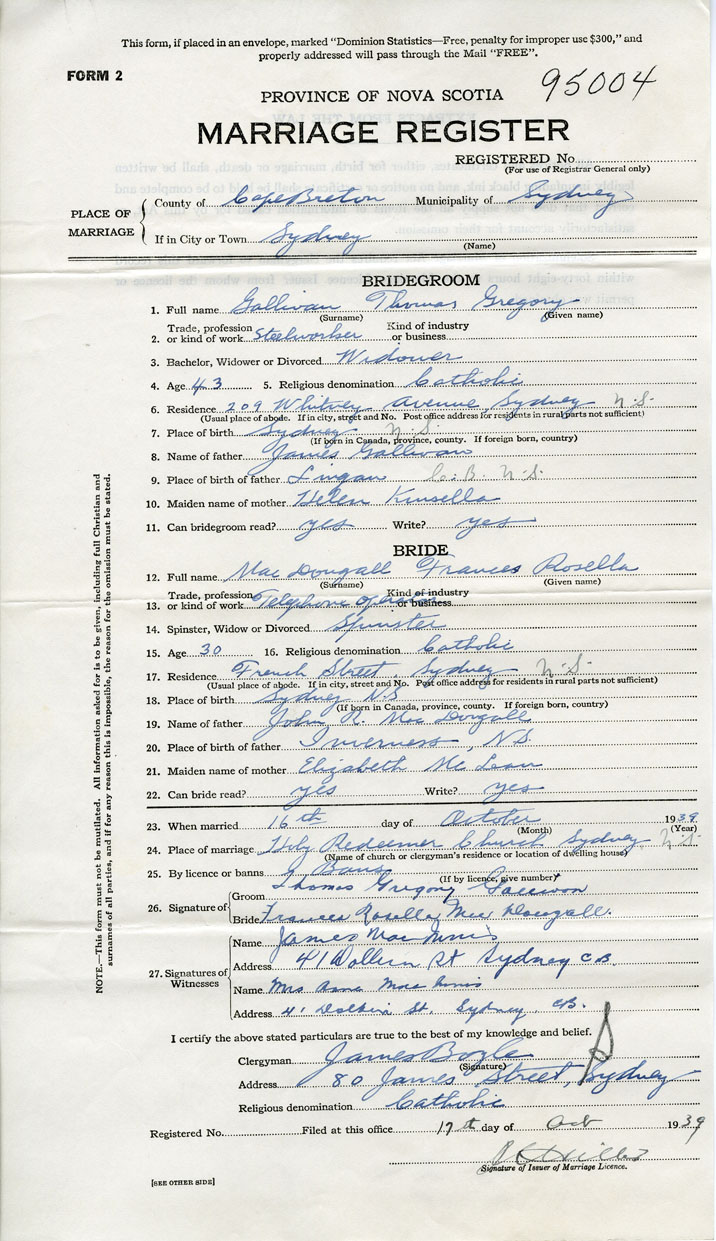 This form, if placed in an envelope, marked "Dominion Statistics—Free, penalty for improper use $300," and
properly addressed will pass through the Mail "FREE".
FORM 2
95004
PROVINCE OF NOVA SCOTIA
MARRIAGE REGISTER
REGISTERED No.
(For use of Registrar General only)
PLACE OF MARRIAGE
County of Cape Breton Municipality of Sydney
If in City or Town Sydney
(Name)
BRIDEGROOM
1. Full name Gallivan Thomas Gregory
(Surname) (Given name)
2. Trade, profession or kind of work Steelworker Kind of industry or business
3. Bachelor, Widower or Divorced Widower
4. Age 43 5. Religious denomination Catholic
6. Residence 209 Whitney Avenue, Sydney N.S.
(Usual place of abode. If in city, street and No. Post office address for residents in rural parts not sufficient)
7. Place of birth Sydney N.S.
(If born in Canada, province, county. If foreign born, country)
8. Name of father James Gallivan
9. Place of birth of father Lingan C.B. N.S.
10. Maiden name of mother Helen Kinsella
11. Can bridegroom read? yes Write? yes
BRIDE
12. Full name Mac Dougall Frances Rosella
(Surname) (Given name)
13. Trade, profession or kind of work Telephone Operator Kind of industry or business
14. Spinster, Widow or Divorced Spinster
15. Age 30 16. Religious denomination Catholic
17. Residence French Street, Sydney N.S.
(Usual place of abode. If in city, street and No. Post office address for residents in rural parts not sufficient)
18. Place of birth Sydney N.S.
(If born in Canada, province, county. If foreign born, country)
19. Name of father John R. Mac Dougall
20. Place of birth of father Inverness, N.S.
21. Maiden name of mother Elizabeth Mc Lean
22. Can bride read? yes Write? yes
23. When married 16th day of October 1939
(Month) (Year)
24. Place of marriage Holy Redeemer Church Sydney N.S.
(Name of church or clergyman's residence or location of dwelling house)
25. By licence or banns Banns
(If by licence, give number)
26. Signature of
Groom Thomas Gregory
Bride Frances Rosella Mac Dougall.
27. Signatures of Witnesses
Name James Mac
Address 41 St Sydney C.B.
Name Mrs Mac
Address 41 St. Sydney, C.B.
I certify the above stated particulars are true to the best of my knowledge and belief.
Clergyman James Boyle
(Signature)
Address 80 James Street, Sydney
Religious denomination Catholic
Registered No. Filed at this office 17th day of Oct 1939
Signature of Issuer of Marriage Licence.
[SEE OTHER SIDE]
NOTE.—This form must not be mutilated. All information asked for is to be given, including full Christian and
surnames of all parties, and if for any reason this is impossible, the reason for the omission must be stated.